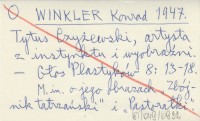 O WINKLER Konrad 1947.
Tytus Czyżewski, artysta
z instynktu i wyobraźni.
— Głos Plastyków 8: 13-18.
M.in. o jego obrazach „Zbój-
nik tatrzański" i „Pastorałki".